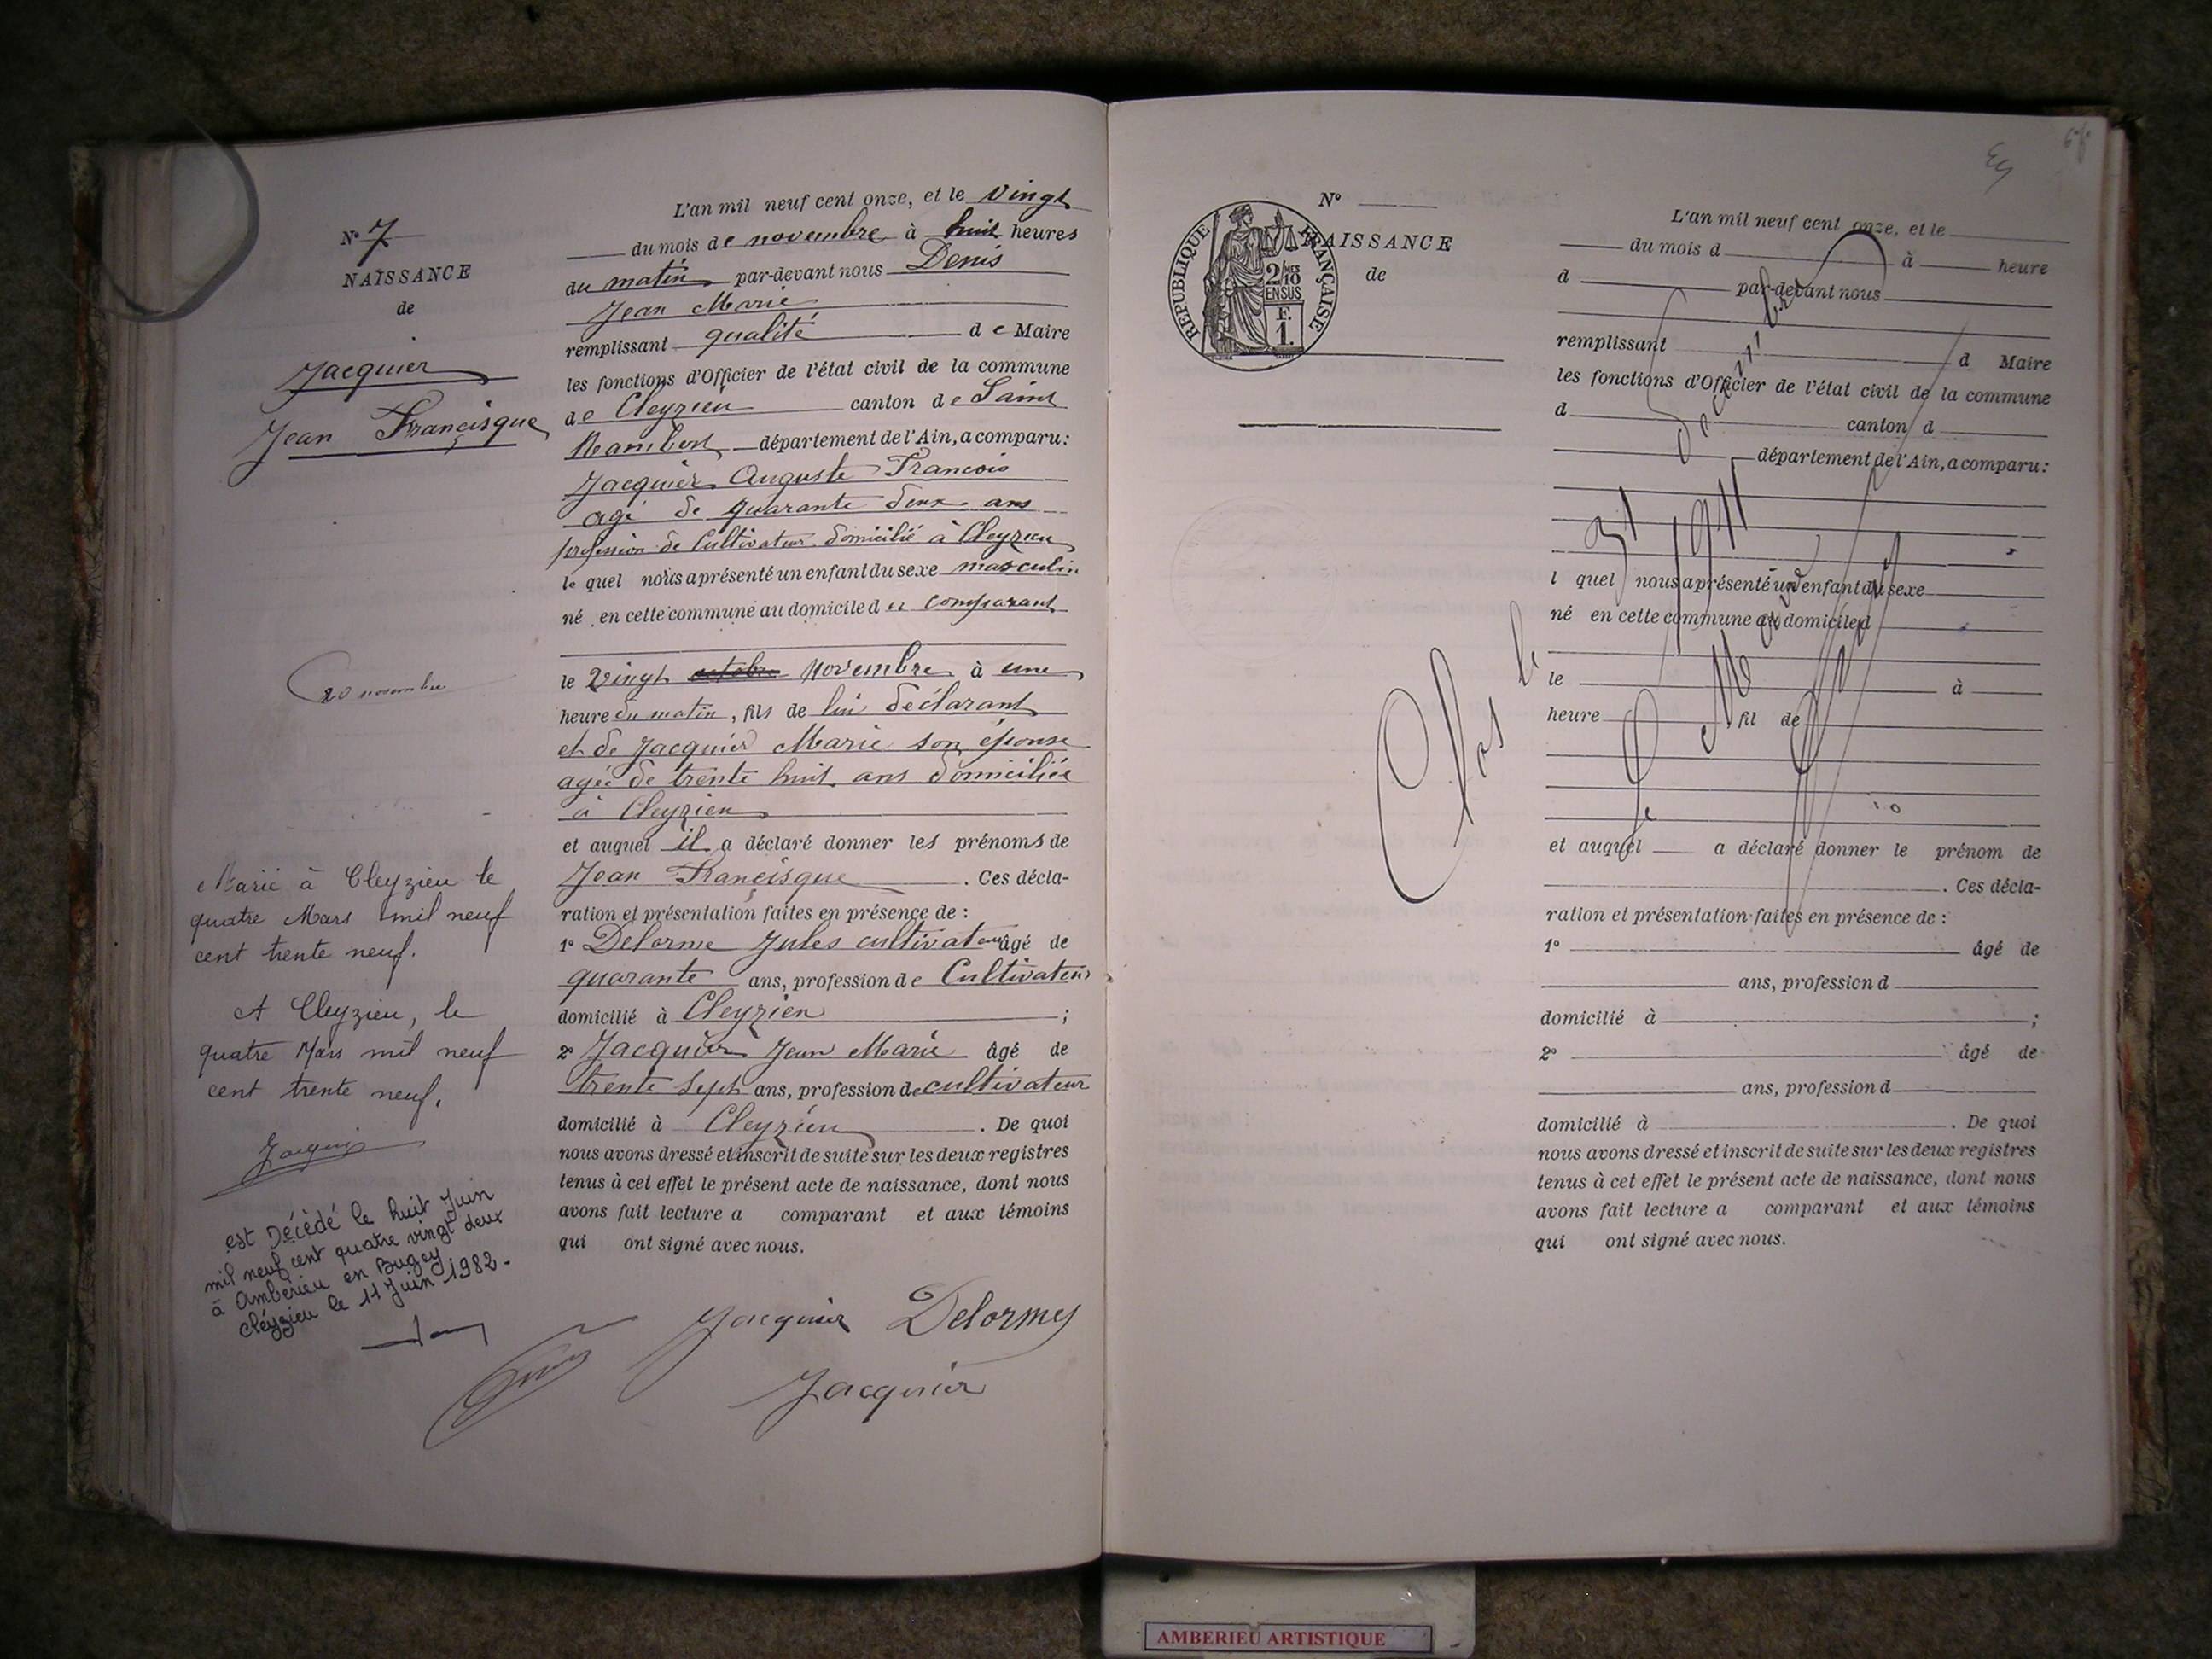 N° 7
NAISSANCE
de
Jacquier
Jean Françisque
20 novembre
Marié à Cleyzieu le
quatre Mars mil neuf
cent trente neuf.
A Cleyzieu, le
quatre Mars mil neuf
cent trente neuf.
Jacquier
est Décédé le huit Juin
mil neuf cent quatre vingt deux
à Ambérieu en Bugey
Cléyzieu le 11 Juin 1982.
L'an mil neuf cent onze, et le vingt
du mois de novembre à huit heures
du matin par-devant nous Denis
Jean Marie
remplissant qualité de Maire
les fonctions d'Officier de l'état civil de la commune
de Cleyzieu canton de Saint
Rambert département de l'Ain, a comparu:
Jacquier Auguste Francois
agé de quarante deux ans
profession de Cultivateur domicilié à Cleyzieu
lequel nous a présenté un enfant du sexe masculin
né en cette commune au domicile du comparant
le Vingt octobre Novembre à une
heure du matin, fils de lui déclarant
et de Jacquier Marie son épouse
agée de trente huit ans domiciliée
à Cleyzieu
et auquel il a déclaré donner les prénoms de
Jean Françisque. Ces décla-
ration et présentation faites en présence de :
1° Delorme Jules cultivateur âgé de
quarante ans, profession de Cultivateur
domicilié à Cleyzieu ;
2° Jacquier Jean Marie âgé de
trente sept ans, profession de cultivateur
domicilié à Cleyzieu. De quoi
nous avons dressé et inscrit de suite sur les deux registres
tenus à cet effet le présent acte de naissance, dont nous
avons fait lecture a comparant et aux témoins
qui ont signé avec nous.
Jacquier Delorme
Jacquier
N°
NAISSANCE
de
RÉPUBLIQUE FRANÇAISE
2/10 MES
EN SUS
F.
1.
L'an mil neuf cent onze, et le
du mois d à heure
d par-devant nous
remplissant d Maire
les fonctions d'Officier de l'état civil de la commune
d canton d
département de l'Ain, a comparu:
l quel nous a présenté un enfant du sexe
né en cette commune au domicile d
le à
heure fil de
et auquel a déclaré donner le prénom de
. Ces décla-
ration et présentation faites en présence de :
1° âgé de
ans, profession d
domicilié à ;
2° âgé de
ans, profession d
domicilié à . De quoi
nous avons dressé et inscrit de suite sur les deux registres
tenus à cet effet le présent acte de naissance, dont nous
avons fait lecture a comparant et aux témoins
qui ont signé avec nous.
Clos le 31 Décembre
1911
Le Maire
AMBERIEU ARTISTIQUE